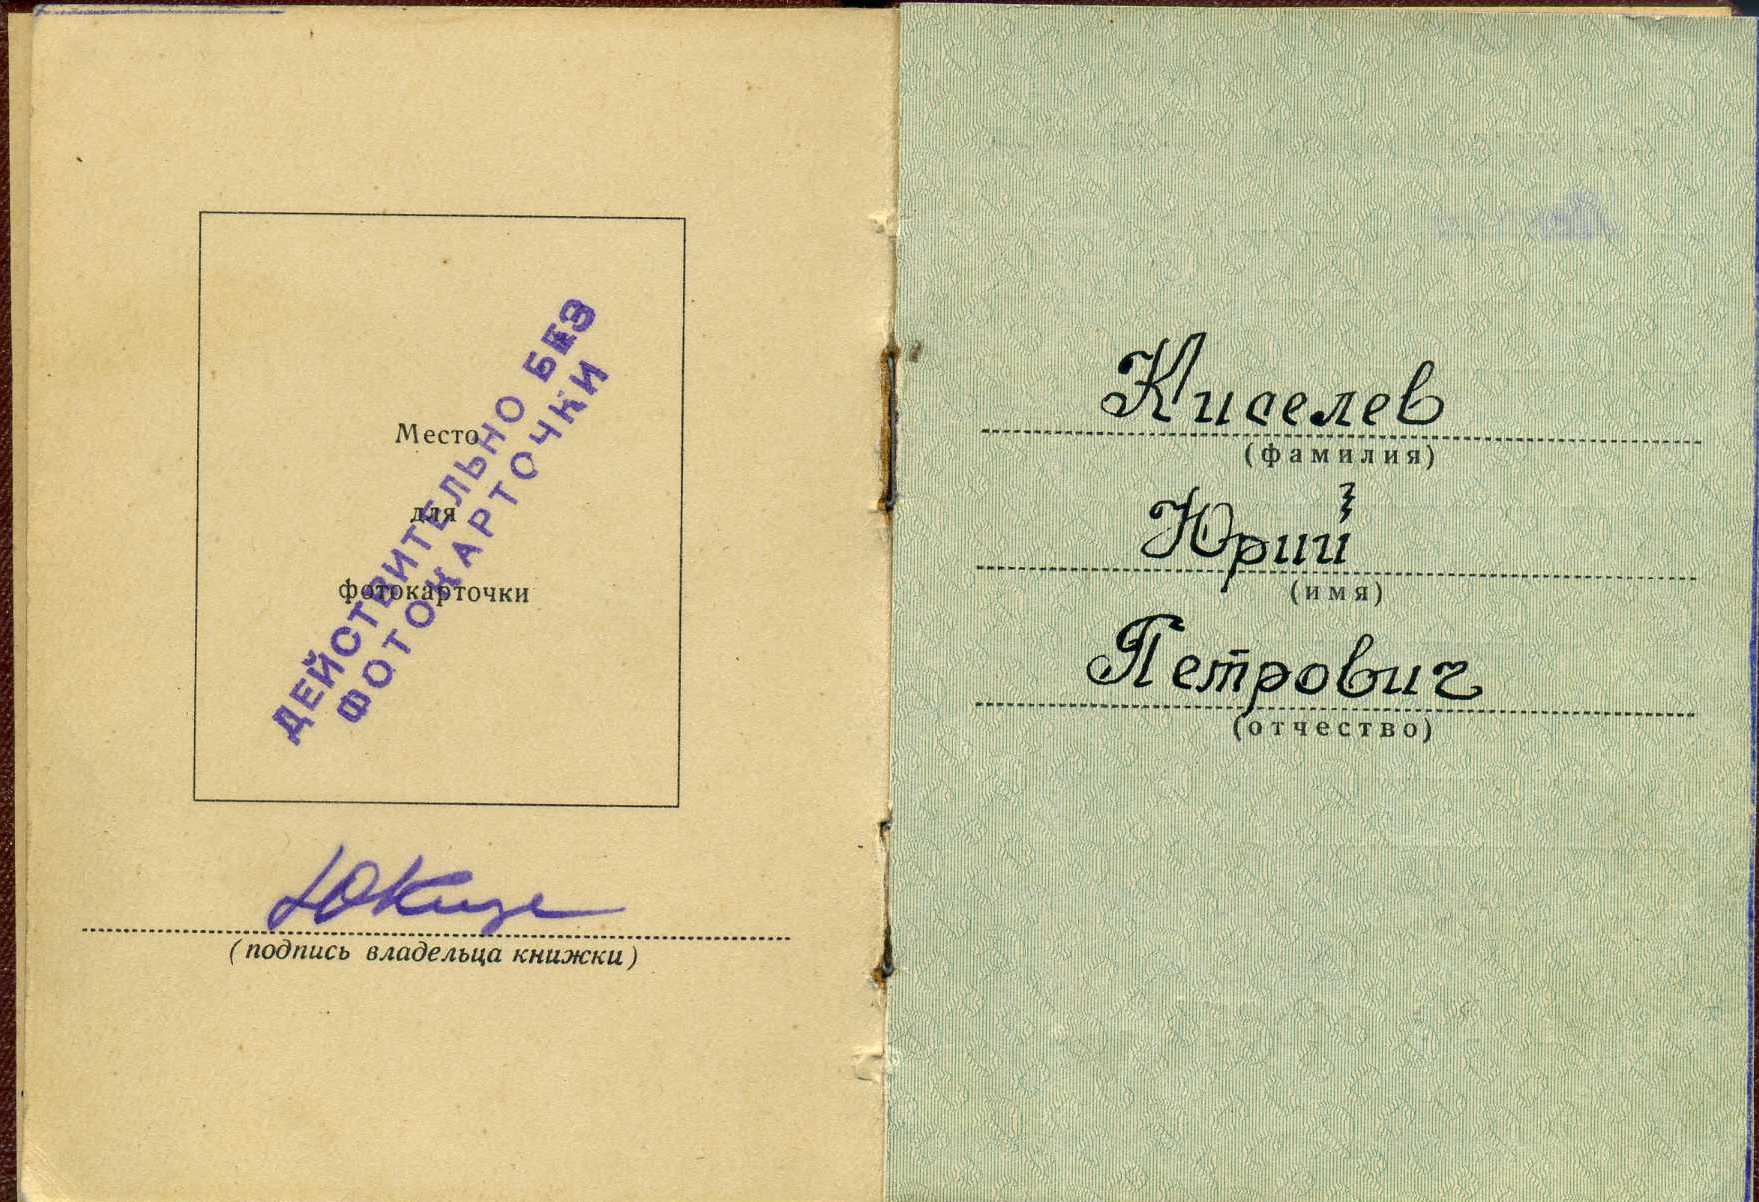 Место
для
фотокарточки
ДЕЙСТВИТЕЛЬНО БЕЗ
ФОТОКАРТОЧКИ
(подпись владельца книжки)
Киселев
(фамилия)
Юрий
(имя)
Петрович
(отчество)